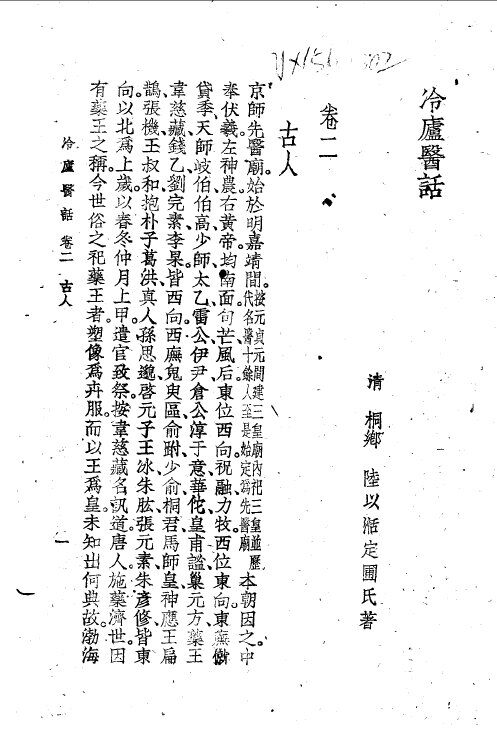 冷廬醫話
清 桐鄉 陸以湉定圃氏著
卷二
古人
京師先醫廟。始於明嘉靖間。按元貞元間建三皇廟內祀三皇並歷代名醫十餘人至是始定爲先醫廟 本朝因之。中
奉伏羲左神農右黃帝。均南面句芒風后東位西向祝融力牧西位東向。東廡僦
貸季、天師岐伯、伯高、少師、太乙、雷公、伊尹、倉公淳于意、華佗、皇甫謐、巢元方、藥王
韋慈藏、錢乙、劉完素、李杲、皆西向。西廡鬼臾區、俞跗、少俞、桐君、馬師皇、神應王扁
鵲、張機、王叔和、抱朴子葛洪、真人孫思邈、啓元子王冰、朱肱、張元素、朱彥修、皆東
向。以北爲上。歲以春冬仲月上甲。遣官致祭。按韋慈藏名訊道。唐人施藥濟世。因
有藥王之稱。今世俗之祀藥王者。塑像爲卉服。而以王爲皇。未知出何典故。渤海
冷廬醫話 卷二 古人 一